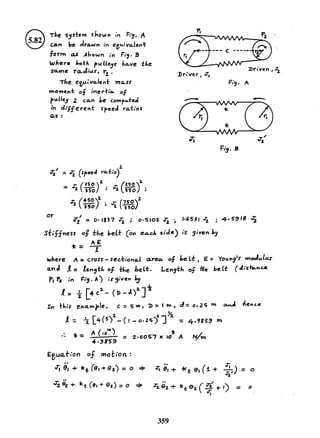 5.82
The system shown in Fig. A
can be drawn in equivalent
form as shown in Fig. B
where both pulleys have the
same radius, r₂.
The equivalent mass
moment of inertia of
pulley 2 can be computed
in different speed ratios
as:
r₁
r₂
c
Driver, J₁
Driven, J₂
Fig. A
k
r₁
r₁
k
J₁
J₂'
Fig. B
J₂' = J₂ (speed ratio)²
or J₂' = 0.1837 J₂ ; 0.5102 J₂ ; 1.6531 J₂ ; 4.5918 J₂
Stiffness of the belt (on each side) is given by
k = AE / l
where A = cross-sectional area of belt, E = Young's modulus
and l = length of the belt. Length of the belt (distance
P₁ P₂ in Fig. A) is given by
l = ½ [4c² - (D-d)²]^½
In this example, c = 5 m, D = 1 m, d = 0.25 m and hence
l = ½ [4(5)² - (1-0.25)²]^½ = 4.9859 m
∴ k = A(10¹⁰) / 4.9859 = 2.0057 × 10⁹ A N/m
Equation of motion:
J₁ θ̈₁ + k_t (θ₁+θ₂) = 0 ⇒ J₁ θ̈₁ + k_t θ₁ (1 + J₁/J₂') = 0
J₂ θ̈₂ + k_t (θ₁+θ₂) = 0 ⇒ J₂ θ̈₂ + k_t θ₂ (J₂'/J₁ + 1) = 0
359